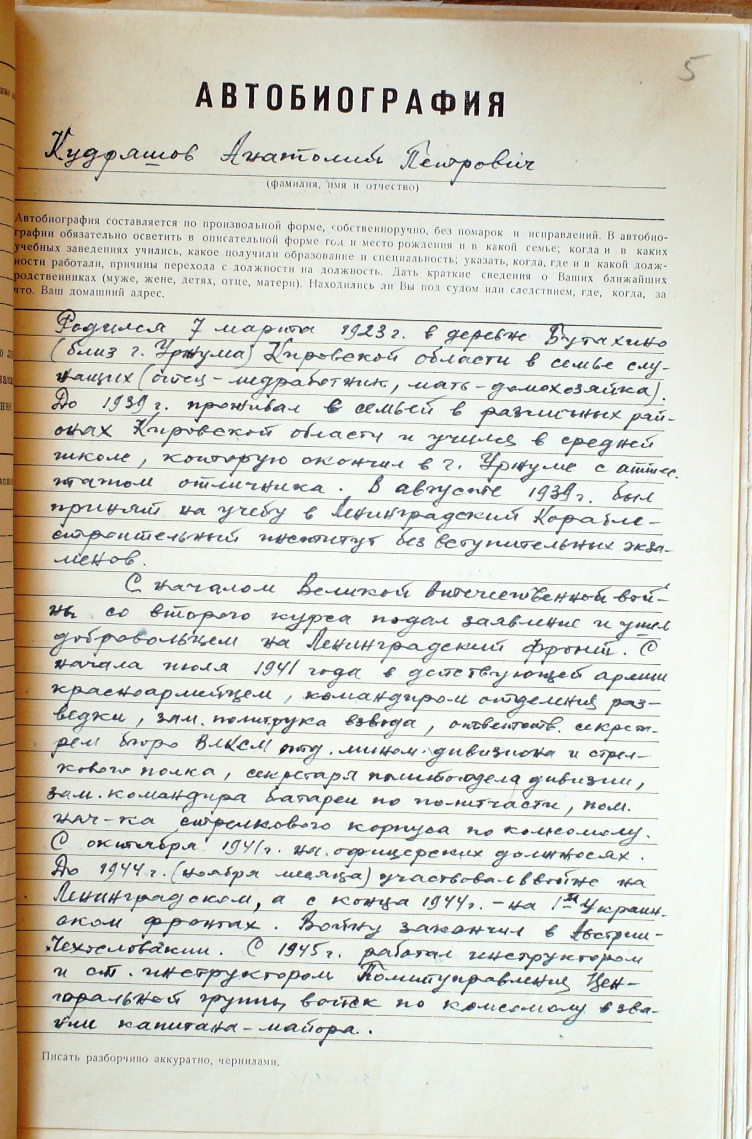 5
АВТОБИОГРАФИЯ
Кудряшов Анатолий Петрович
(фамилия, имя и отчество)
Автобиография составляется по произвольной форме, собственноручно, без помарок и исправлений. В автобио-
графии обязательно осветить в описательной форме год и место рождения и в какой семье; когда и в каких
учебных заведениях учились, какое получили образование и специальность; указать, когда, где и в какой долж-
ности работали, причины перехода с должности на должность. Дать краткие сведения о Ваших ближайших
родственниках (муже, жене, детях, отце, матери). Находились ли Вы под судом или следствием, где, когда, за
что. Ваш домашний адрес.
Родился 7 марта 1923 г. в деревне Бутахино
(близ г. Уржума) Кировской области в семье слу-
жащих (отец - медработник, мать - домохозяйка).
До 1939 г. проживал с семьей в различных рай-
онах Кировской области и учился в средней
школе, которую окончил в г. Уржуме с аттес-
татом отличника. В августе 1939 г. был
принят на учебу в Ленинградский Корабле-
строительный институт без вступительных экза-
менов.
С началом Великой Отечественной вой-
ны со второго курса подал заявление и ушел
добровольцем на Ленинградский фронт. С
начала июля 1941 года в действующей армии
красноармейцем, командиром отделения раз-
ведки, зам. политрука взвода, ответств. секрета-
рем бюро ВЛКСМ отд. мином. дивизиона и стрел-
кового полка, секретаря политотдела дивизии,
зам. командира батареи по политчасти, пом.
нач-ка стрелкового корпуса по комсомолу.
С октября 1941 г. на офицерских должносях.
До 1944 г. (ноября месяца) участвовал в войне на
Ленинградском, а с конца 1944 г. - на 1м Украин-
ском фронтах. Войну закончил в Австрии-
Чехословакии. С 1945 г. работал инструктором
и ст. инструктором Политуправления Цен-
тральной группы войск по комсомолу в зва-
нии капитана-майора.
Писать разборчиво аккуратно, чернилами.